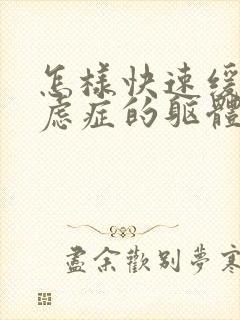 怎樣快速緩
慮症的軀體
盡余歡别夢寒